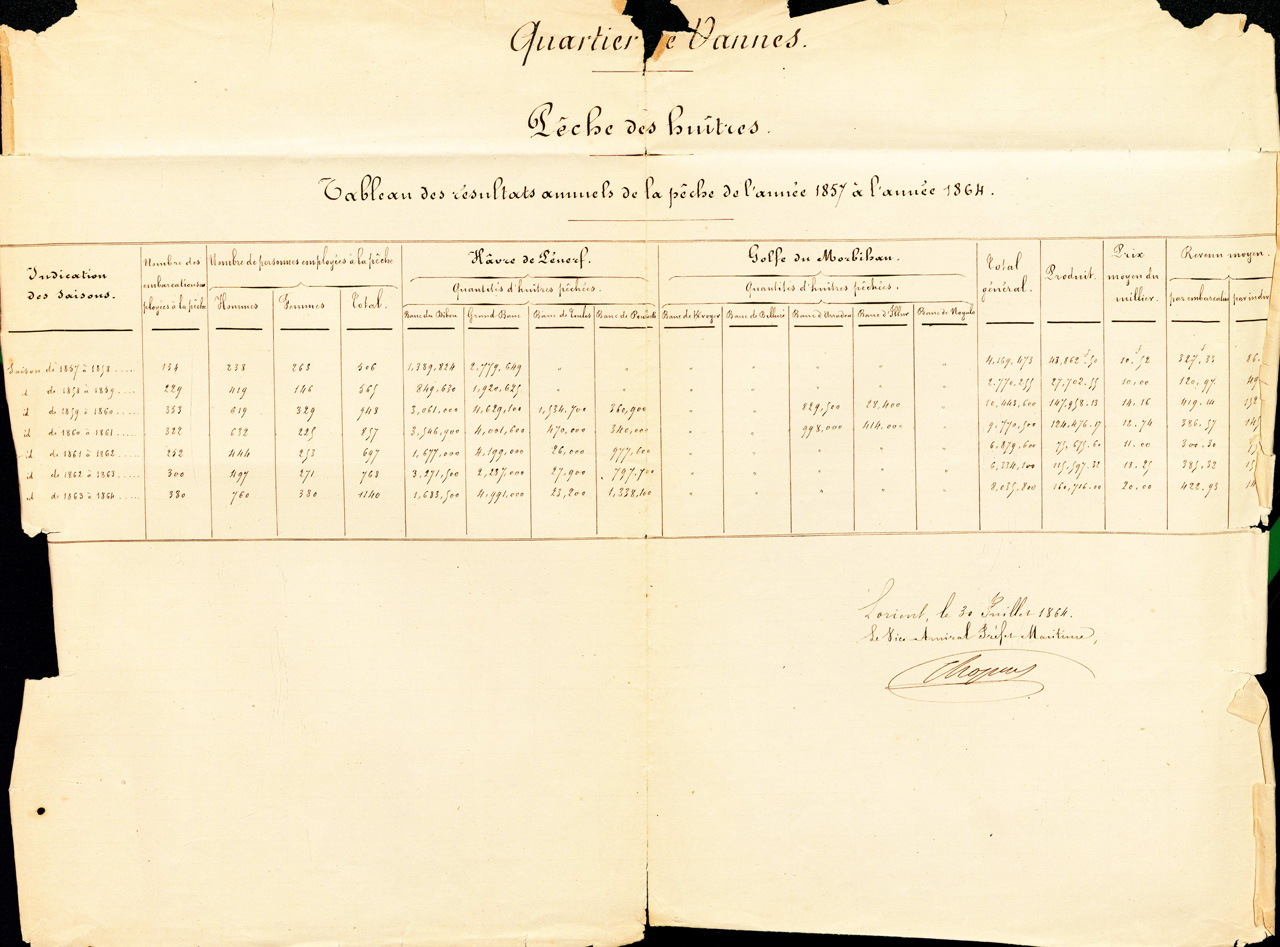 Quartier de Vannes.
Pêche des huîtres.
Tableau des résultats annuels de la pêche de l'année 1857 à l'année 1864.
Indication des Saisons. Nombre des embarcations employées à la pêche Nombre de personnes employées à la pêche Hâvre de Pénerf. Golfe du Morbihan. Total général. Produit. Prix moyen du millier. Revenu moyen.
Quantités d'huîtres pêchées. Quantités d'huîtres pêchées.
Hommes Femmes Total. Banc du Grand Banc Banc de Banc de Banc de Banc de Banc d'Arradon Banc d' Banc de Noyalo par embarcation par indiv
Saison de 1857 à 1858 134 238 268 506 1,389,824 2.779,649 " " " " " " " 4,169,473 43,862.50 10.52 327.33 86.
id de 1858 à 1859 229 419 146 565 849,630 1,920,625 " " " " " 2.770,255 27.702.55 10.00 120.97 49
id de 1859 à 1860 353 619 329 948 3,061,000 4,629,100 1,534,700 360,900 " " 829,500 28,400 " 10,443,600 147,958.13 14.16 419.14
id de 1860 à 1861 322 632 225 857 3,546,900 4,001,600 470,000 340,000 " " 998,000 414,000 " 9,770,500 124,476.17 12.74 386.57
id de 1861 à 1862 252 444 253 697 1,677,000 4,199,000 26,000 977,600 " " " " " 6,879,600 75,675.60 11.00 300.30
id de 1862 à 1863 300 497 271 768 3,271,500 2,237,000 27,900 797,700 " " " " " 6,334,100 115,597.32 18.25 385.32
id de 1863 à 1864 380 760 380 1140 1,683,500 4,991,000 23,200 1,338,100 " " " " " 8,035,800 160,716.00 20.00 422.93 14
Lorient, le 30 Juillet 1864.
Le Vice-Amiral Préfet Maritime,